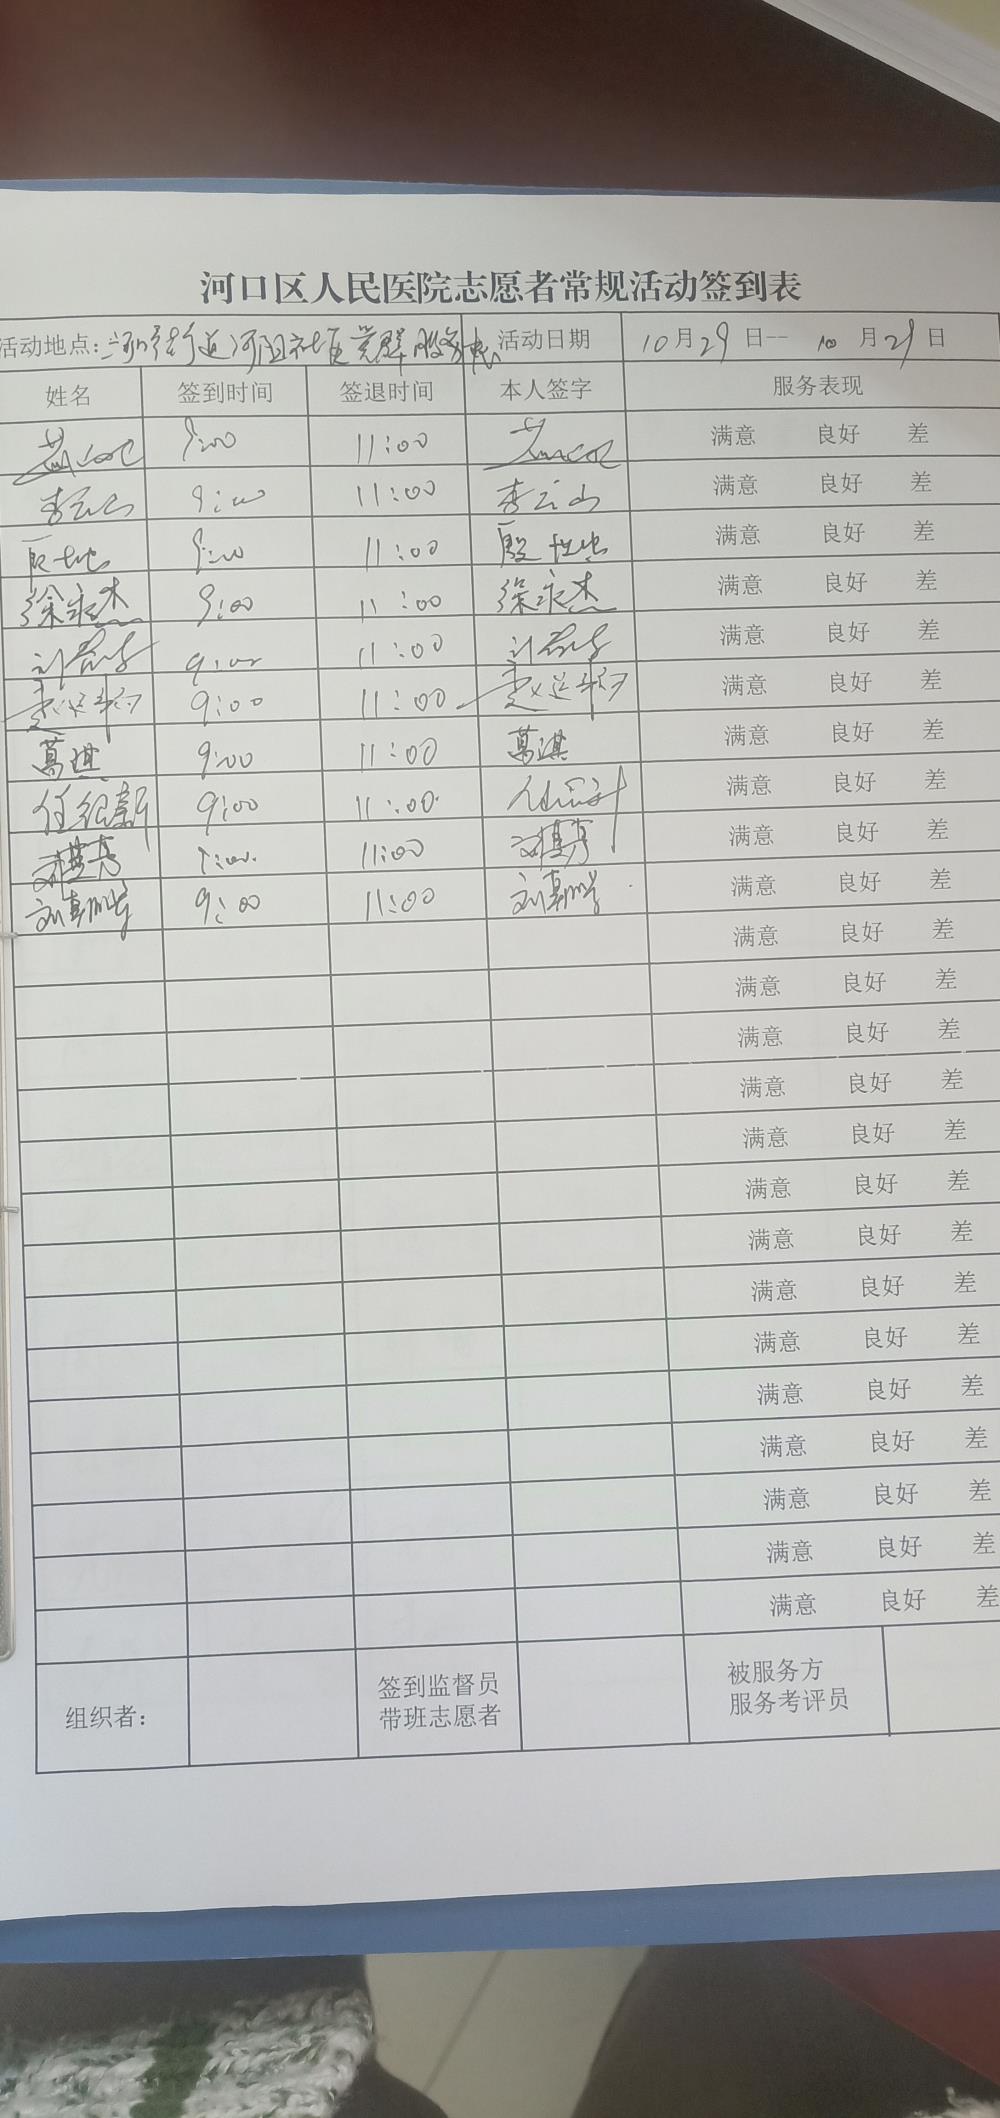 河口区人民医院志愿者常规活动签到表
活动地点: 街道河阳社区党群服务中心 活动日期 10月29日-- 10月29日
姓名 签到时间 签退时间 本人签字 服务表现
9:00 11:00 满意 良好 差
李云山 9:00 11:00 李云山 满意 良好 差
9:00 11:00 殷 满意 良好 差
徐永杰 9:00 11:00 徐永杰 满意 良好 差
刘 9:00 11:00 刘 满意 良好 差
9:00 11:00 满意 良好 差
葛淇 9:00 11:00 葛淇 满意 良好 差
任纪新 9:00 11:00 满意 良好 差
刘 9:00 11:00 刘 满意 良好 差
刘 9:00 11:00 刘 满意 良好 差
满意 良好 差
满意 良好 差
满意 良好 差
满意 良好 差
满意 良好 差
满意 良好 差
满意 良好 差
满意 良好 差
满意 良好 差
满意 良好 差
满意 良好 差
满意 良好 差
满意 良好 差
满意 良好 差
组织者: 签到监督员 被服务方
带班志愿者 服务考评员